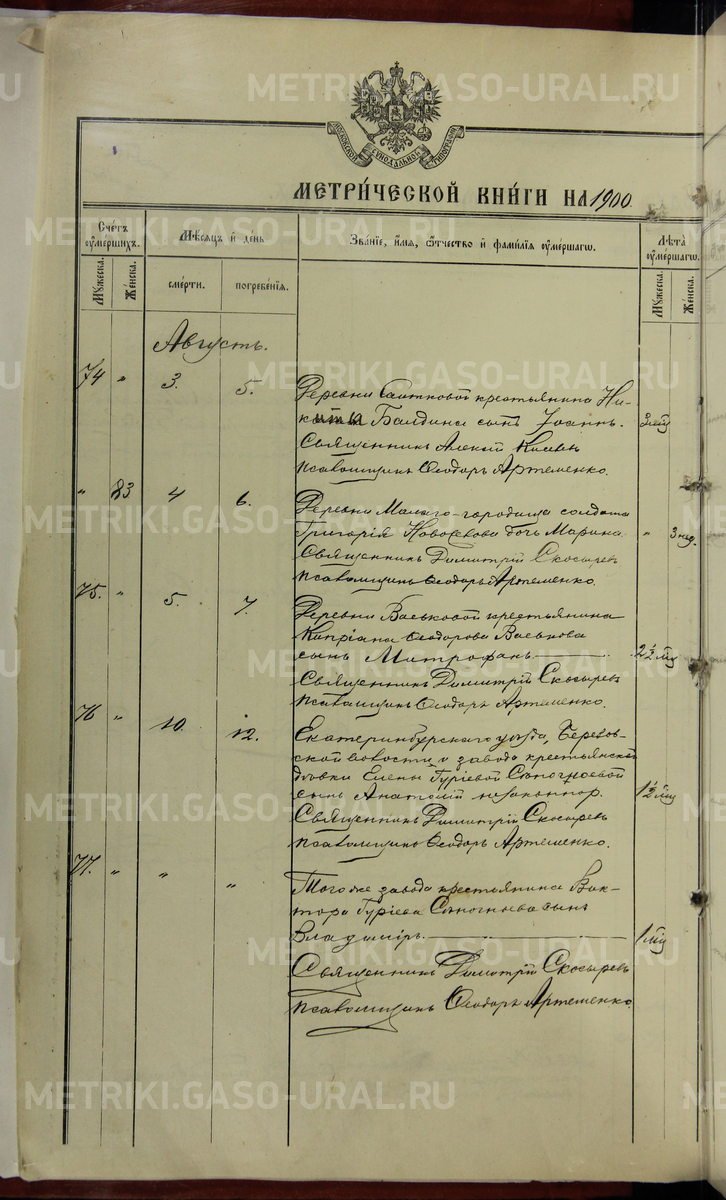 METRIKI.GASO-URAL.RU
МОСКОВСКОЙ СѴНОДАЛЬНОЙ ТИПОГРАФІИ
МЕТРИ́ЧЕСКОЙ КНИ́ГИ НА 1900
Сче́тъ ᲂу҆ме́ршихъ.
Мꙋ́жеска.
Же́нска.
Мѣ́сяцъ и҆ де́нь
сме́рти.
погребе́нїѧ.
Зва́нїе, и҆́мѧ, ѻ҆́тчество и҆ фамилі́ѧ ᲂу҆ме́ршагѡ.
Лѣ́та ᲂу҆ме́ршагѡ.
Мꙋ́жеска
Же́нска.
Августъ.
74 " 3. 5. Деревни крестьянина Ни-
киты Балдина сынъ Іоаннъ.
Священникъ Алексій
псаломщикъ Ѳеодоръ Артеменко.
" 83 4 6. Деревни Малаго-городища солдата " 3 нед.
Григорія Новосёлова дочь Марина
Священникъ Димитрій Скосыревъ
псаломщикъ Ѳеодоръ Артеменко.
75. " 5. 7. Деревни Васьковой крестьянина
Кипріана Ѳеодорова Васькова
сынъ Митрофанъ 2½ мѣс
Священникъ Димитрій Скосыревъ
псаломщикъ Ѳеодоръ Артеменко.
76 " 10. 12. Екатеринбургскаго уѣзда, Березов-
ской волости и завода крестьянской
дѣвки Елены Гуріевой
сынъ Анатолій незаконнор. 1½ мѣс
Священникъ Димитрій Скосыревъ
псаломщикъ Ѳеодоръ Артеменко.
77. " " " Того же завода крестьянина Вик-
тора Гуріева сынъ
Владиміръ. 1 мѣс
Священникъ Димитрій Скосыревъ
псаломщикъ Ѳеодоръ Артеменко.